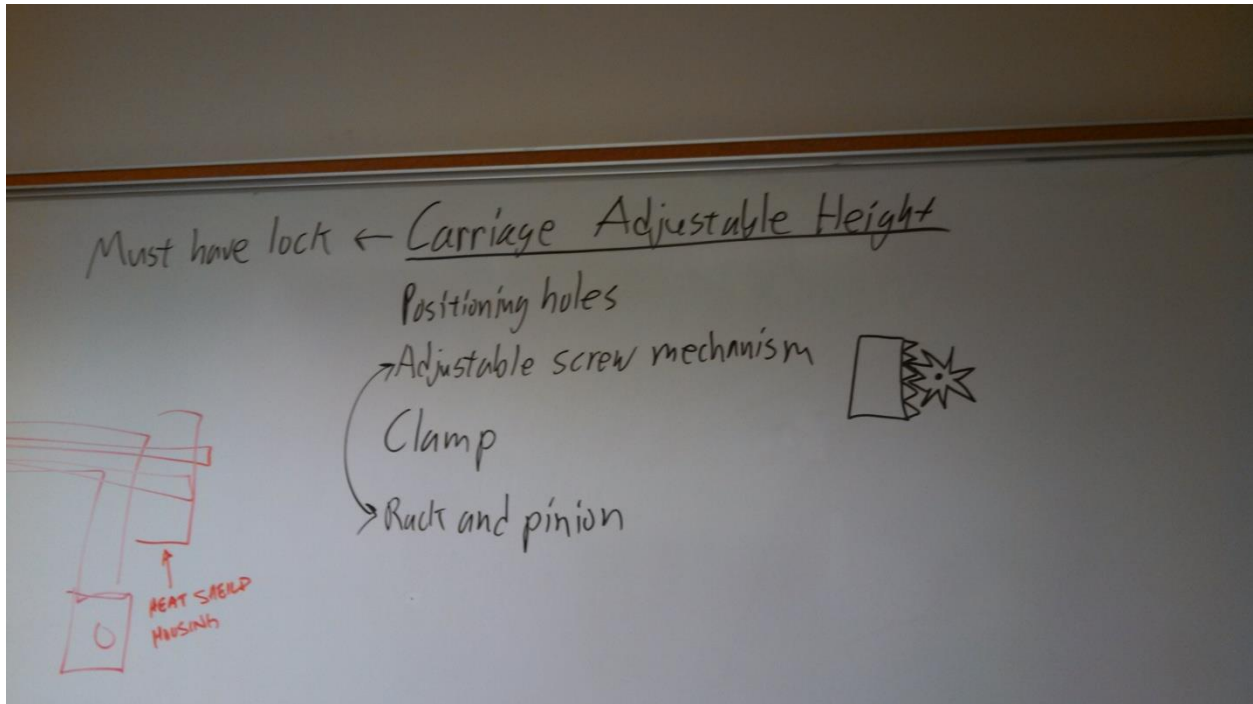 Must have lock ← Carriage Adjustable Height
Positioning holes
Adjustable screw mechanism
Clamp
Rack and pinion
HEAT SHEILD
HOUSING